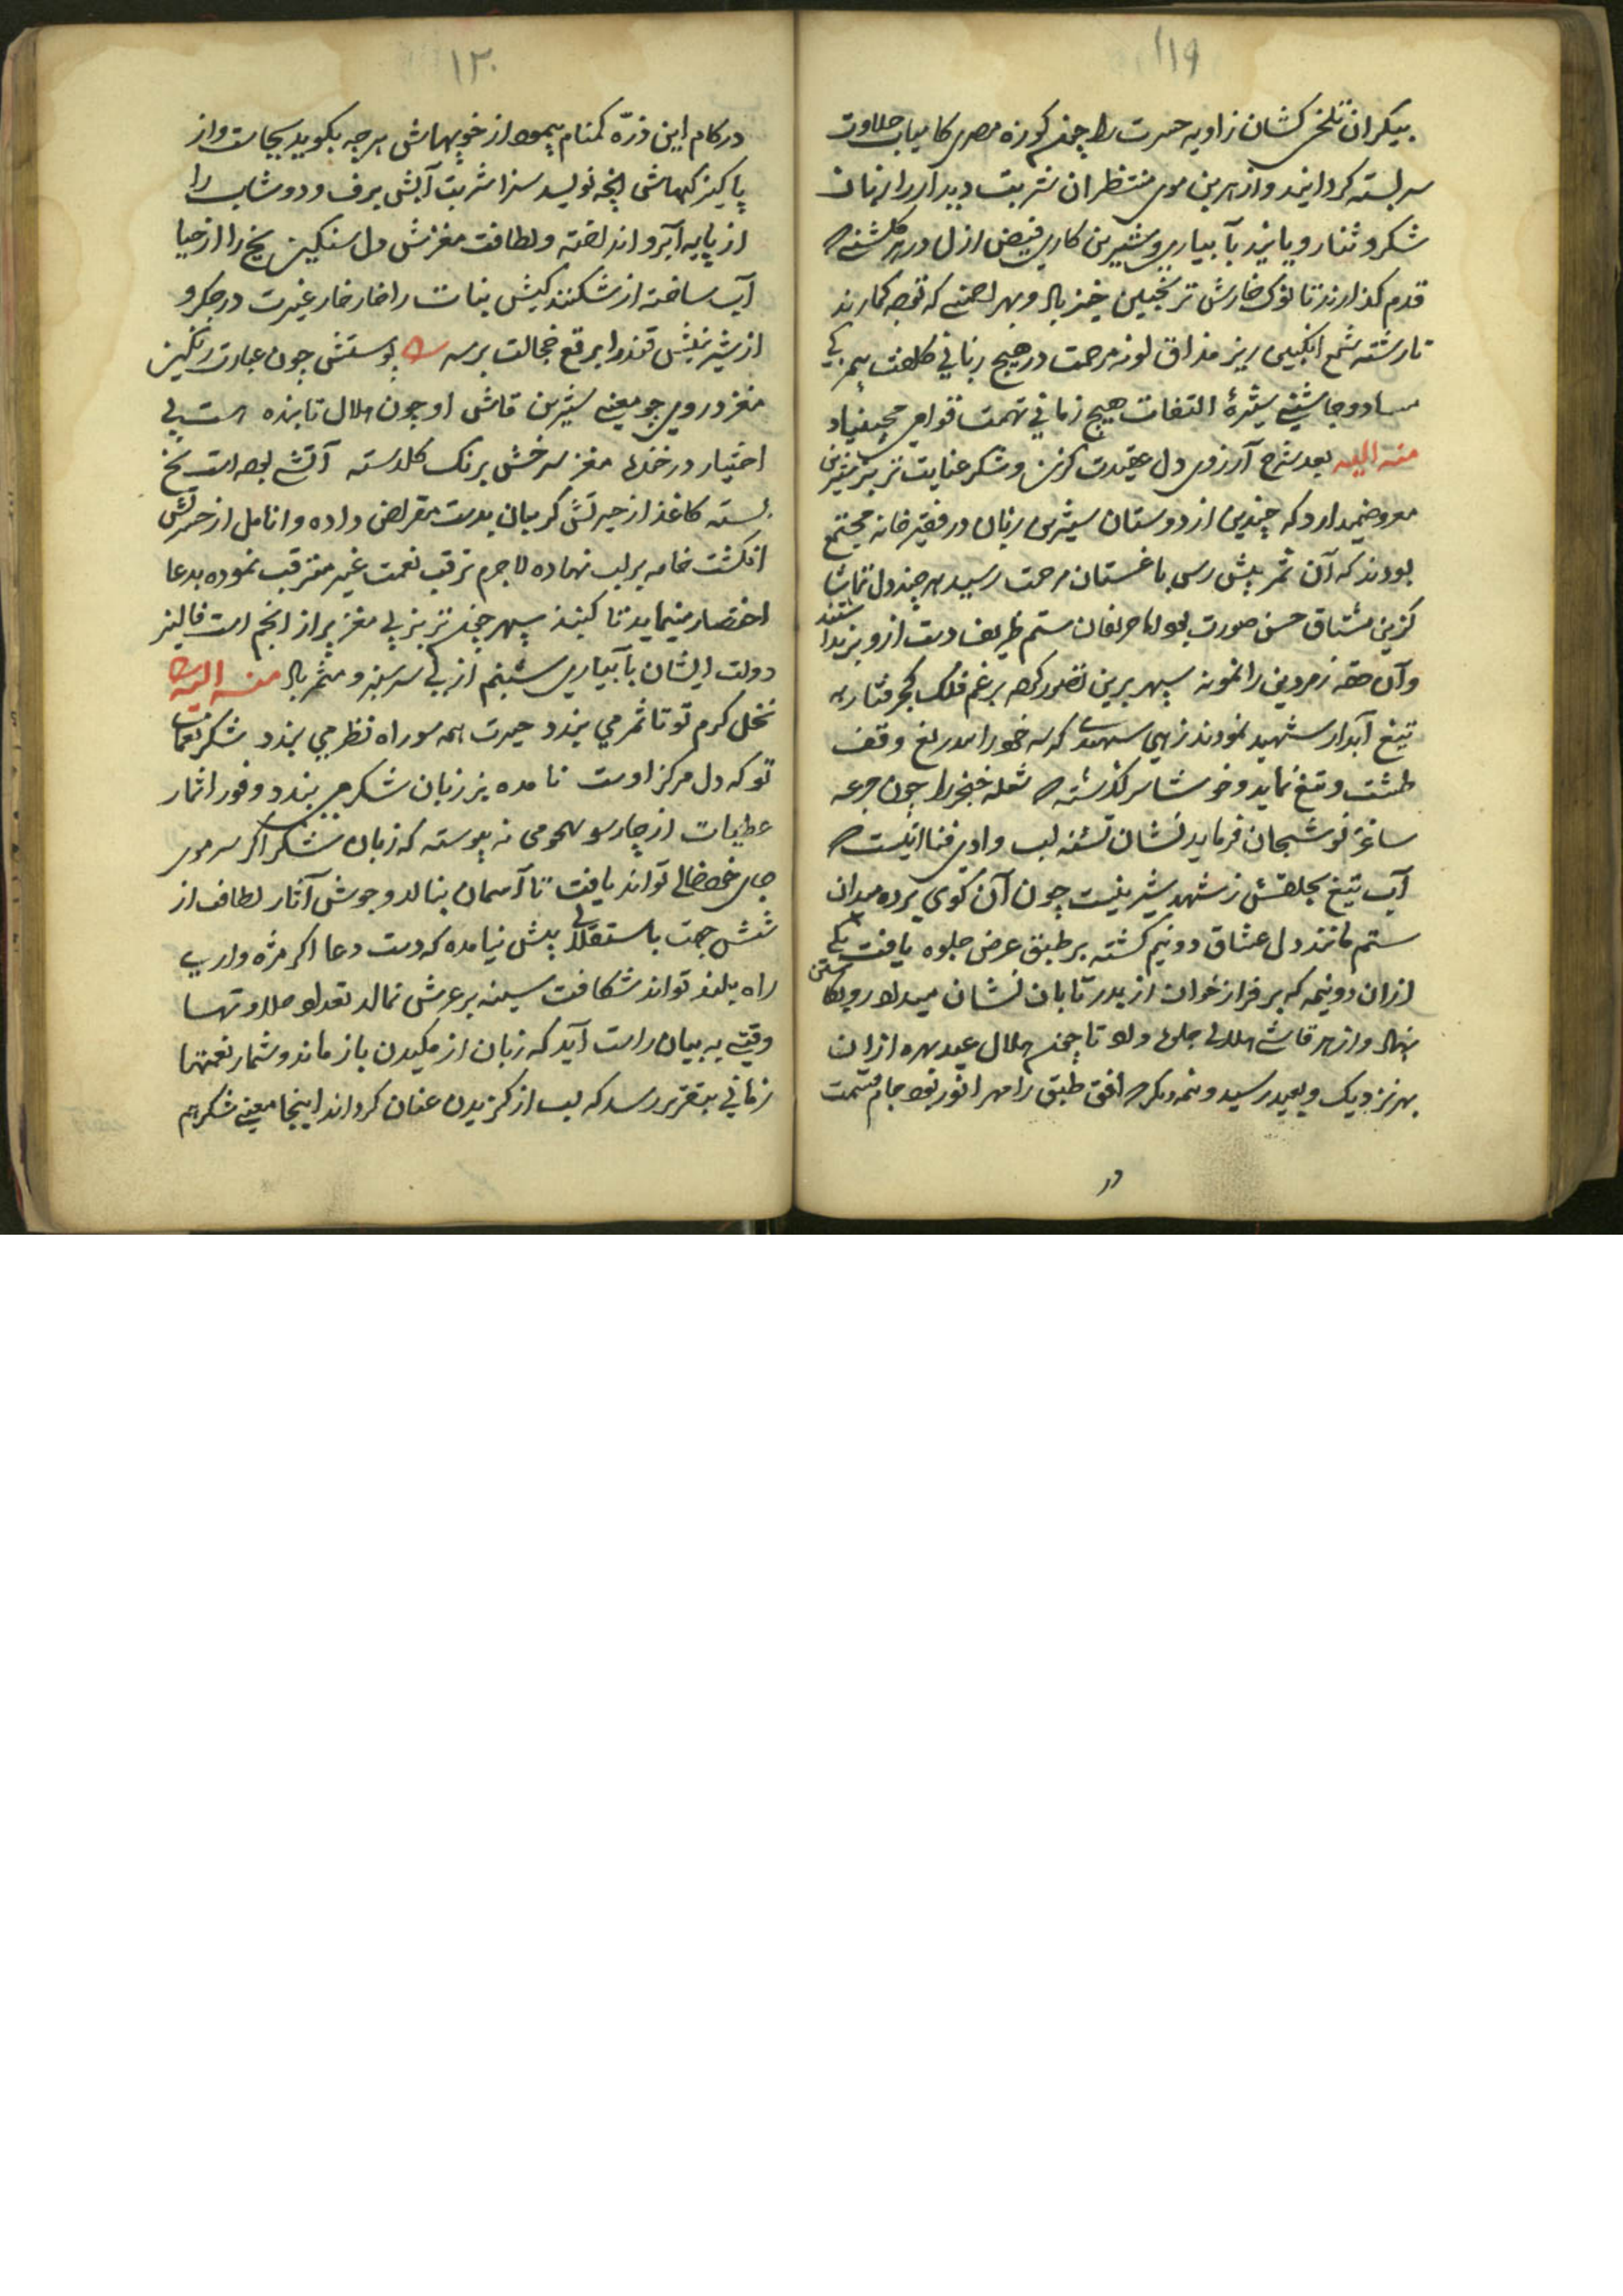 ۱۱۹
بیکران تلخی کشان زاویه حسرت را چون کوزه مصری کامیاب حلاوت
سربسته کردانید و از هر بن موی منتظران شربت دیدار را زبان
شکر و ثنا رویانید بآبیاری و شیرین کاری فیض ازل در هر کلشنی که
قدم کذارند تا نوک خارش ترنجبین خیز باد و بهر انجمنی که توجه کمارند
تا رشته شمع انکبین ریز مذاق لوزه مرحمت در هیچ زبانی کلفت بیمزکی
مبیناد و چاشنی شیره التفات هیچ زمانی تهمت قوام مچیناد
منه الیه بعد شرح آرزوی دل عقیدت کزین و شکر عنایت تربز شیرین
معروض میدارد که چندین از دوستان شیرین زبان در فقیرخانه مجتمع
بودند که آن ثمر پیش رس باغستان مرحمت رسید هر چند دل تماشا
کزین مشتاق حسن صورت بود اما حریفان ستم ظریف دست ازو برنداشتند
و آن حقه زمردین را نمونه سپهر برین تصور کرده برغم فلک کجرفتار به
تیغ آبدار شهید نمودند زهی شهیدی که سر خود را بیدریغ وقف
طشت و تیغ نماید و خوشا سرکذشته که شعله خنجر را چون جرعه
ساغر نوشیجان فرماید نشان تشنه لب وادی فنا اینست که
آب تیغ بحلقش ز شهد شیرینست چون آن کوی برده میدان
ستم مانند دل عشاق دو نیم کشته بر طبق عرض جلوه یافت یکی
ازان دو نیمه که بر فراز خوان از بدر تابان نشان میداد رو بکاستن
نهاد و از هر قاشی هلالی جلوه داد تا چون هلال عید بهره ازان
بهر نزدیک و بعید رسید و نیمه دیکر که افق طبق را مهر انور بود جام قسمت
در
۱۲۰
در کام این ذره کمنام پیمود از خوبیهاش هرچه بکوید بجاست و از
پاکیزکیهاش آنچه نویسد سزا شربت آبش برف و دوشاب را
از پایه آبرو انداخته و لطافت مغزش دل سنکین یخ را از حیا
آب ساخته از شکنندکیش نبات را خار خار غیرت در جکر و
از شیرینیش قند را برقع خجالت بر سر پوستش چون عبارت رنکین
مغز در وی چو معنی شیرین قاش او چون هلال تابنده است بی
اختیار در خندها مغز سرخش برنک کلدسته آتشی بوده است یخ
بسته کاغذ از حیرتش کریبان بدست مقراض داده و انامل از حسرتش
انکشت خامه بر لب نهاده لاجرم ترقب نعمت غیر مترقب نموده بدعا
اختصار مینماید تا کنبذ سپهر چون تربز پی مغز پر از انجم است فالیز
دولت ایشان بآبیاری شبنم ازلی سرسبز و مثمر باد منه الیه
نخل کرم تو تا ثمر می بندد حیرت همه سو راه نظر می بندد شکر نعمات
تو که دل مرکز اوست نامده بر زبان شکر می بندد وفور اثمار
عطیات از چار سو هجومی نه پیوسته که زبان شکر اکر سر موی
جای خود خالی تواند یافت تا آسمان ببالد و جوش آثار لطاف از
شش جهت باستقلالی پیش نیامده که دست دعا اکر مژه واری
راه بلند تواند شکافت سینه بر عرش نمالد تعداد حلاوتها
وقتی به بیان راست آید که زبان از مکیدن باز ماند و شمار نعمتها
زمانی بتقریر رسد که لب از کزیدن عنان کرداند اینجا معنی شکر هم